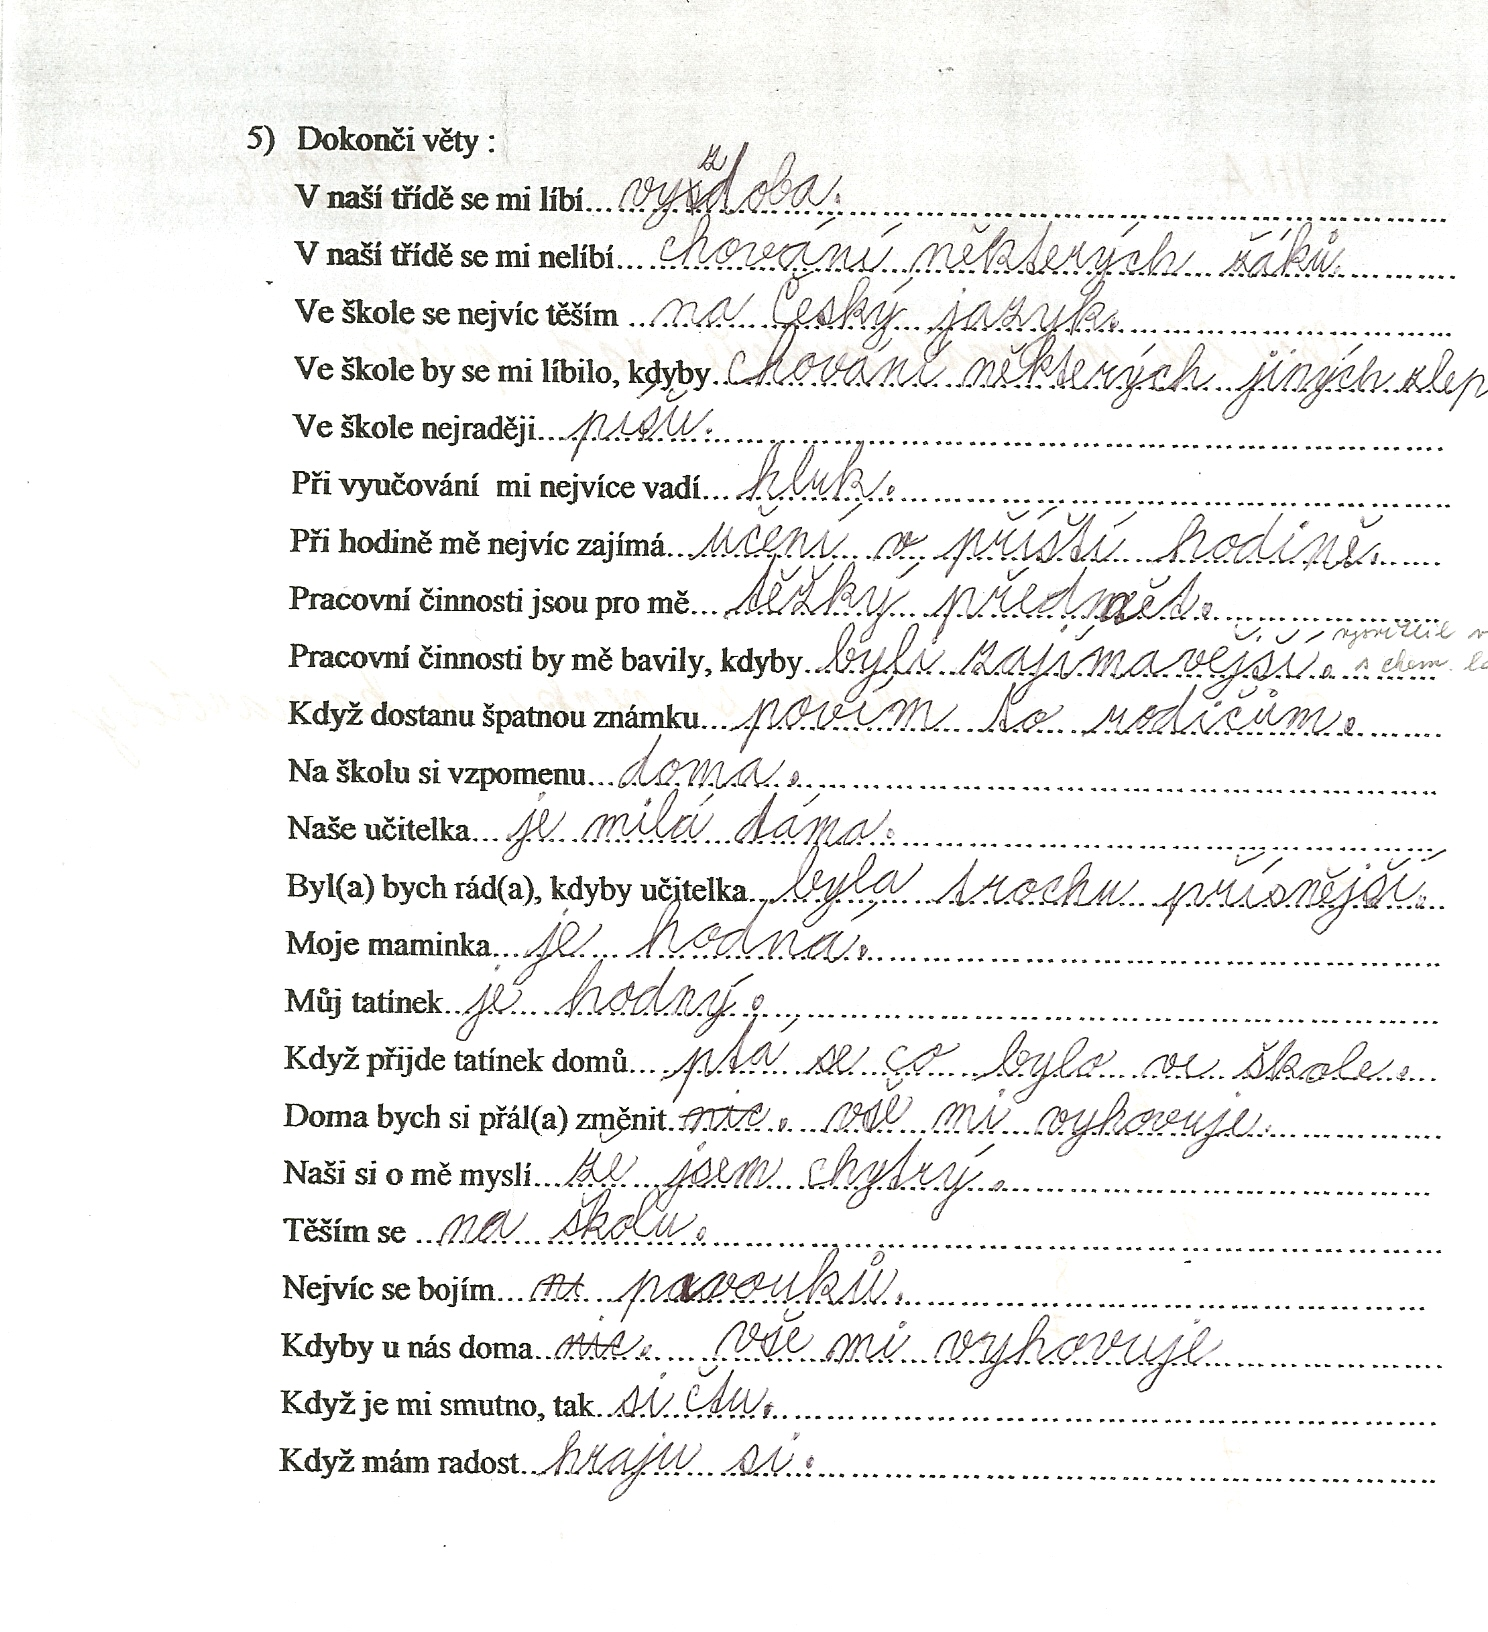 5) Dokonči věty :
V naší třídě se mi líbí...vyzdoba.
V naší třídě se mi nelíbí...chování některých žáků.
Ve škole se nejvíc těším ...na Český jazyk.
Ve škole by se mi líbilo, kdyby chování některých jiných zlep
Ve škole nejraději...píšu.
Při vyučování mi nejvíce vadí...hluk.
Při hodině mě nejvíc zajímá...učení v příští hodině.
Pracovní činnosti jsou pro mě...těžký předmět.
Pracovní činnosti by mě bavily, kdyby...byli zajímavější.
s chem.
Když dostanu špatnou známku...povím to rodičům.
Na školu si vzpomenu...doma.
Naše učitelka...je milá dáma.
Byl(a) bych rád(a), kdyby učitelka...byla trochu přísnější.
Moje maminka...je hodná.
Můj tatínek...je hodný.
Když přijde tatínek domů...ptá se co bylo ve škole.
Doma bych si přál(a) změnit nic. vše mi vyhovuje.
Naši si o mě myslí...že jsem chytrý.
Těším se ...na školu.
Nejvíc se bojím... pavouků.
Kdyby u nás doma...nic. vše mi vyhovuje
Když je mi smutno, tak...si čtu.
Když mám radost...hraju si.